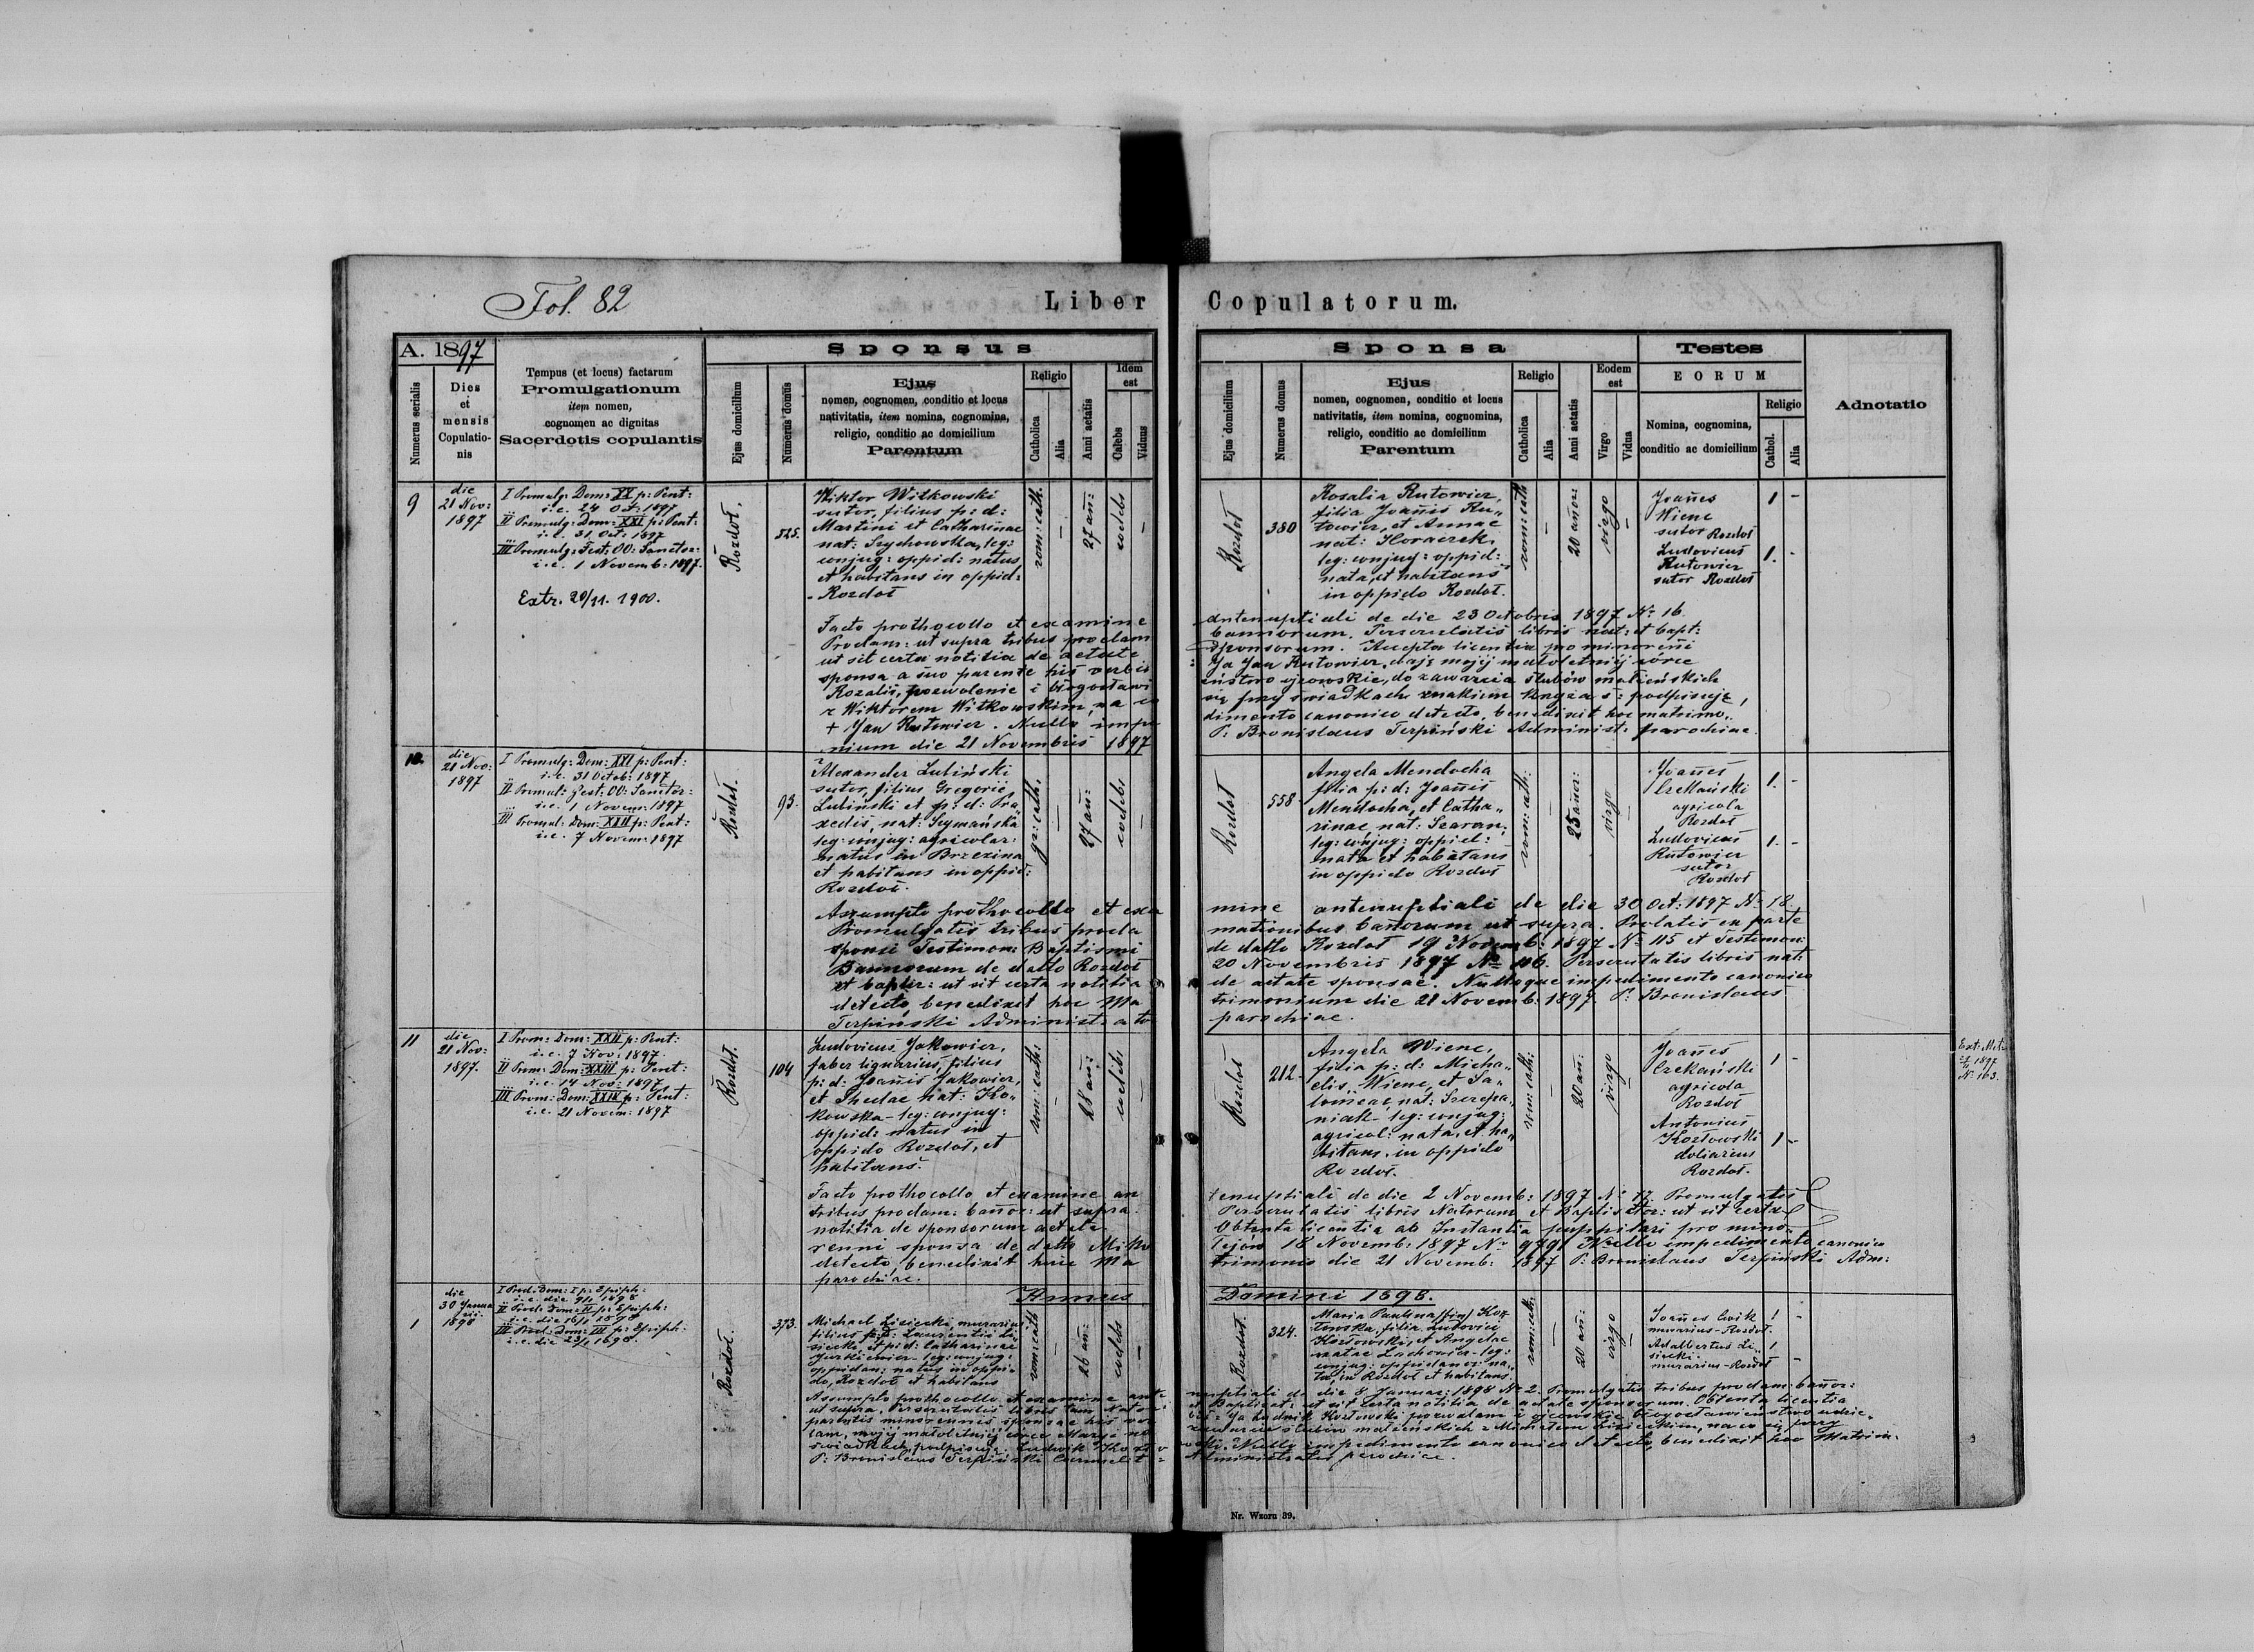 Fol. 82
Liber Copulatorum.
A. 1897
Numerus serialis
Dies
et
mensis
Copulatio-
nis
Tempus (et locus) factarum
Promulgationum
item nomen,
cognomen ac dignitas
Sacerdotis copulantis
Sponsus
Ejus domicilium
Numerus domus
Ejus
nomen, cognomen, conditio et locus
nativitatis, item nomina, cognomina,
religio, conditio ac domicilium
Parentum
Religio
Catholica
Alia
Anni aetatis
Idem
est
Caelebs
Viduus
Sponsa
Ejus domicilium
Numerus domus
Ejus
nomen, cognomen, conditio et locus
nativitatis, item nomina, cognomina,
religio, conditio ac domicilium
Parentum
Religio
Catholica
Alia
Anni aetatis
Eodem
est
Virgo
Vidua
Testes
EORUM
Nomina, cognomina,
conditio ac domicilium
Religio
Cathol.
Alia
Adnotatio
9
die
21 Nov:
1897
I Promulg: Dom: XX p: Pent:
i.e. 24 Oct: 1897
II Promulg: Dom: XXI p: Pent:
i.e. 31 Oct: 1897
III Promulg: Fest: OO: Sanctor:
i.e. 1 Novemb: 1897.
Extr. 20/11. 1900.
Rozdoł,
525.
Wiktor Witkowski
sutor, filius p: d:
Martini et Catharinae
nat: Szychowska, leg:
conjug: oppid: natus
et habitans in oppid:
Rozdoł
rom: cath:
-
27 an:
coelebs
-
Rozdoł
380
Rosalia Rutowicz,
filia Joannis Ru„
towicz, et Annae
nat: Horaczek,
leg: conjug: oppid:
nata, et habitans
in oppido Rozdoł.
rom: cath
-
20 annor:
virgo
-
Joannes
Wiene
sutor Rozdoł
1 -
Ludovicus
Rutowicz
sutor Rozdoł
1. -
Facto prothocollo et examine antenuptiali de die 23 Octobris 1897 No 16.
Proclam: ut supra tribus proclam bannorum. Perscrutatis libris nat: et bapt:
ut sit certa notitia de aetate sponsorum. Accepta licentia pro minorenni
sponsa a suo parente his verbis: Ja Jan Rutowicz, daję mojéj małoletniéj córce
Rozalii, pozwolenie i błogosławieństwo ojcowskie, do zawarcia ślubów małżeńskich
z Wiktorem Witkowskim, na co się przy świadkach znakiem krzyża ś: podpisuję,
+ Jan Rutowicz. Nullo impedimento canonico detecto, benedixit hoc matrimo„
nium die 21 Novembris 1897 P: Bronislaus Terpiński Administ: parochiae.
10.
die
21 Nov:
1897
I Promulg: Dom: XXI p: Pent:
i.e. 31 Octob: 1897
II Promul: Fest: OO: Sanctor:
i.e. 1 Novem: 1897
III Promul: Dom: XXII p: Pent:
i.e. 7 Novem: 1897
Rozdoł.
93.
Alexander Lubiński
sutor, filius Gregorii
Lubiński et p: d: Pra„
xedis, nat: Szymańska
leg: conjug: agricolar:
natus in Brzezina
et habitans in oppid:
Rozdoł.
gr: cath:
-
27 an:
coelebs
-
Rozdoł
558
Angela Mendocha
filia p: d: Joannis
Mendocha, et Catha„
rinae nat: Szaran,
leg: conjug: oppid:
nata et habitans
in oppido Rozdoł
rom: cath:
-
25 annor:
virgo
-
Joannes
Czekański
agricola
Rozdoł
1. -
Ludovicus
Rutowicz
sutor
Rozdoł
1. -
Assumpto prothocollo et examine antenuptiali de die 30 Oct: 1897 No 18.
Promulgatis tribus proclamationibus bannorum ut supra. Prolatis ex parte
sponsi Testimon: Baptismi de datto Rozdoł 19 Novemb: 1897 No 115 et Testimon:
Bannorum de datto Rozdoł 20 Novembris 1897 No 116. Perscrutatis libris nat:
et baptis: ut sit certa notitia de aetate sponsae. Nulloque impedimento canonico
detecto, benedixit hoc Matrimonium die 21 Novemb: 1897. P: Bronislaus
Terpiński Administrator parochiae.
11
die
21 Nov:
1897.
I Prom: Dom: XXII p: Pent:
i.e. 7 Nov: 1897.
II Prom: Dom: XXIII p: Pent:
i.e. 14 Nov: 1897
III Prom: Dom: XXIV p: Pent:
i.e. 21 Novem: 1897
Rozdoł.
104
Ludovicus Jakowicz,
faber lignarius, filius
p: d: Joannis Jakowicz,
et Theclae nat: Ko„
kowska - leg: conjug:
oppid: natus in
oppido Rozdoł, et
habitans.
rom: cath:
-
28 an:
coelebs
-
Rozdoł
212
Angela Wiene,
filia p: d: Micha„
elis Wiene, et Sa„
lomeae nat: Szczepa„
niak - leg: conjug:
agricol: nata, et ha„
bitans in oppido
Rozdoł.
rom: cath:
-
20 an:
virgo
-
Joannes
Czekański
agricola
Rozdoł
1 -
Antonius
Kozłowski
doliarius
Rozdoł.
1 -
Ext: Met:
1897
No 163.
Facto prothocollo et examine antenuptiali de die 2 Novemb: 1897 No 17. Promulgatis
tribus proclam: bannor: ut supra. Perscrutatis libris Natorum et Baptisator: ut sit certa
notitia de sponsorum aetate. Obtenta licentia ab Instantia puppilari pro mino„
renni sponsa de datto Mikołajów 18 Novemb: 1897 No 9791 Nullo impedimento canonico
detecto, benedixit huic Matrimonio die 21 Novemb: 1897 P: Bronislaus Terpiński Adm:
parochiae.
Annus Domini 1898.
1
die
30 Janua
rii
1898
I Procl: Dom: I p: Epiph:
i.e. die 9/1 1898
II Procl: Dom: II p: Epiph:
i.e. die 16/1 1898
III Procl: Dom: III p: Epiph:
i.e. die 23/1 1898.
Rozdoł.
373.
Michael Lisiecki, murarius
filius p: d: Laurentii Li„
siecki, et p: d: Catharinae
Jurkiewicz - leg: conjug:
oppidan: natus in oppi„
do, Rozdoł et habitans
rom: cath
-
26 an:
coelebs
-
Rozdoł.
324.
Maria Paulina Koz„
łowska, filia Ludovici
Kozłowski, et Angelae
natae Lachowicz - leg:
conjug: oppidanor: na„
ta, in Rozdoł et habitans.
rom: cath:
-
20 an:
virgo
-
Joannes Cwik
murarius - Rozdoł.
1 -
Adalbertus Li„
siecki
murarius - Rozdoł
1 -
Assumpto prothocollo et examine antenuptiali de die 8 Januar: 1898 No 2. Promulgatis tribus proclam: bannor:
ut supra. Perscrutatis libris tam Nator: et Baptizat: ut sit certa notitia de aetate sponsorum. Obtenta licentia
parentis minorennis sponsae his verbis: Ja Ludwik Kozłowski pozwalam i ojcowskie błogosławieństwo udzie„
lam, mojéj małoletniéj córce Maryi na zawarcie ślubów małżeńskich z Michałem Lisieckim, na co się przy
świadkach podpisuję: Ludwik Kozłowski. Nullo impedimento canonico detecto, benedixit hoc Matrim:
P: Bronislaus Terpiński Carmelit: Administrator parochiae.
Nr. Wzoru 39.